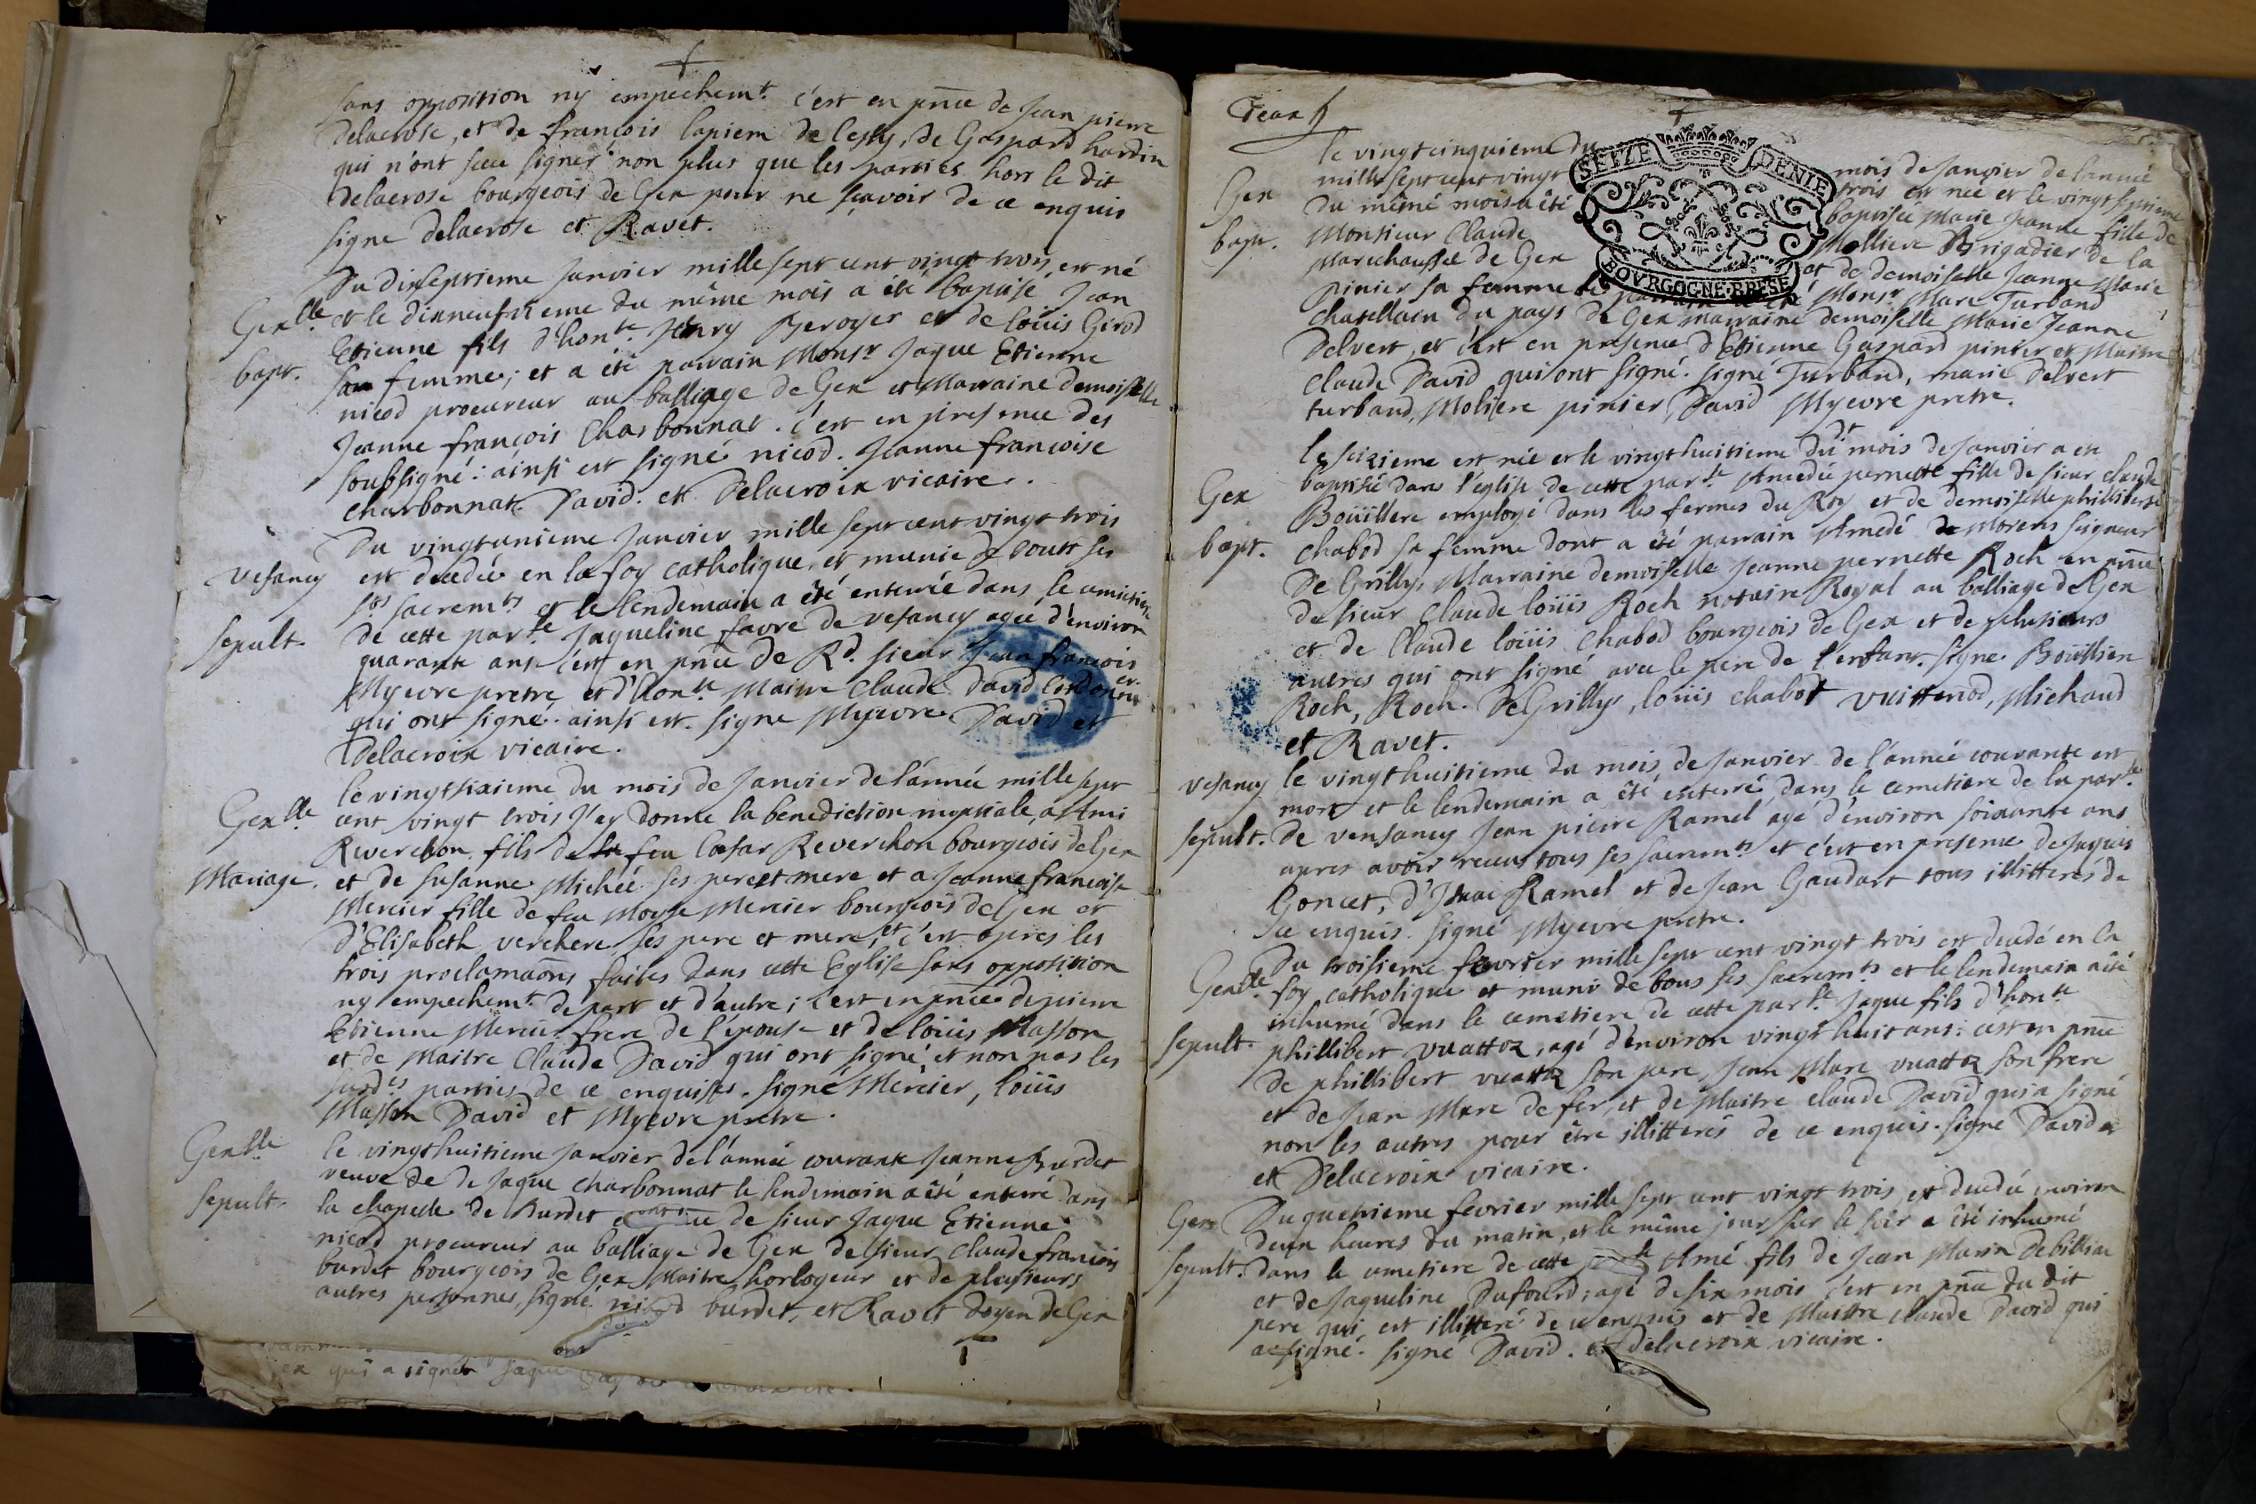 sans opposition ny empechemt. c'est en pnce de Jean pierre
delacrose, et de françois lapierre de lessy, de Gaspard hardin
qui n'ont sceu signer non plus que les parties hors le dit
delacrose bourgeois de Gex pour ne sçavoir de ce enquis
signe delacrose et Ravet.
Du dixseptieme Janvier mille sept cent vingt trois, est né
Gexlle et le dixneufvieme du même mois a été baptisé Jean
Etienne fils d'honte. Henry Beroyer et de loüis Girod
bapt. sa femme; et a été parrain Monsr Jaque Etienne
nicod procureur au balliage de Gex et Marraine demoiselle
Jeanne françois Charbonnat. c'est en presence des
soubsigné: ainsi est signé nicod. Jeanne françoise
charbonnat. David. et Delacroix vicaire.
Du vingtunieme Janvier mille sept cent vingt trois
vesancy est decedée en la foy catholique, et munie de toutt ses
sts sacremts et le lendemain a été enterrée dans le cimitiere
sepult. de cette parse Jaqueline favre de vesancy agée d'environ
quarante ans c'est en pnce de Rd. sieur Jean françois
Myevre pretre, et d'honte Maitre Claude David Cordonnier
qui ont signé. ainsi est signe Myevre David et
Delacroix vicaire.
le vingtsixieme du mois de Janvier de l'année mille sept
Gexlle cent vingt trois J'ay donné la benediction nuptiale, a Ami
Reverchon fils de feu Cesar Reverchon bourgeois de Gex
Mariage. et de Susanne Michée ses pere et mere et a Jeanne françoise
Mercier fille de feu Moyse Mercier bourgeois de Gex et
d'Elisabeth verchere ses pere et mere, et c'est apres les
trois proclamaons faites dans cette Eglise sans opposition
ny empechemt de part et d'autre; c'est en pnce de pierre
Etienne Mercier frere de l'épouse et de loüis Masson
et de Maitre Claude David qui ont signé et non pas les
susdes parties de ce enquises. signé Mercier, loüis
Masson David et Myevre pretre.
Gexlle le vingthuitieme Janvier de l'année courante Jeanne Burdet
veuve de de Jaque Charbonnat le lendemain a été enterré dans
sepult. la chapelle de Burdet de sieur Jaque Etienne
nicod procureur au balliage de Gex de sieur Claude françois
burdet bourgeois de Gex Maitre horlogeur et de plusieurs
autres personnes, signé nicod burdet, et Ravet doyen de Gex
qui a signé Jaque
Deux
le vingtcinquieme du mois de Janvier de l'année
Gex mille sept cent vingt trois est née et le vingtseptieme
du même mois a été baptisée Marie Jeanne fille de
bapt. Monsieur Claude Molliere Brigadier de la
Marechaussée de Gex et de demoiselle Jeanne Marie
pinier sa femme le parrain a été Monsr Marc Turband
chatellain du pays de Gex marraine demoiselle Marie Jeanne
Delvert, et c'est en presence d'Etienne Gaspard pinier et Maitre
Claude David qui ont signé. signé Turband, marie Delvert
turband, Moliere pinier, David Myevre pretre.
le seizieme est née et le vingthuitieme dudt mois de Janvier a eté
Gex baptisée dans l'église de cette parse Amedée pernette fille de sieur claude
Boüillere employé dans les fermes du Roy et de demoiselle philliberte
bapt. chabod sa femme dont a été parrain Amedé de Morens seigneur
De Grilly, Marraine demoiselle Jeanne pernette Roch en pnce
de sieur Claude loüis Roch notaire Royal au balliage de Gex
et de Claude loüis Chabod bourgeois de Gex et de plusieurs
autres qui ont signé avec le pere de l'enfant. signé Boüillier
Roch, Roch. De Grilly, loüis chabot vuittenod, Michaud
et Ravet.
vesancy le vingthuitieme du mois de Janvier de l'année courante est
mort et le lendemain a été enterré dans le cemetiere de la parse
sepult. de vensancy Jean pierre Ramel agé d'environ soixante ans
apres avoir receu tous ses sacremts et c'est en presence de Jaques
Goncet, d'Isaac Ramel et de Jean Gaudart tous illitterés de
ce enquis. signé Myevre pretre.
Du troisieme fevrier mille sept cent vingt trois est decedé en la
Gexlle foy catholique et muni de tous ses sacremts et le lendemain a été
inhumé dans le cemetiere de cette parse Jaque fils d'honte
sepult. phillibert vuattoz, agé d'environ vingt huit ans: c'est en pnce
de phillibert vuattoz son pere, Jean Marc vuattoz son frere
et de Jean Marc defer, et de Maitre Claude David qui a signé
non les autres pour être illitterés de ce enquis. signe David
et Delacroix vicaire.
Gex Du quatrieme fevrier mille sept cent vingt trois est decedé environ
deux heures du matin, et le même jour sur le soir a été inhumé
sepult. dans le cemetiere de cette parse Amé fils de Jean Marin Debilliac
et de Jaqueline Dufourd, agé de six mois c'est en pnce du dit
pere qui est illitteré de ce enquis et de Maitre claude David qui
a signé. signé David. et delacroix vicaire.
SEIZE DENIE
BOVRGOGNE·BRESE